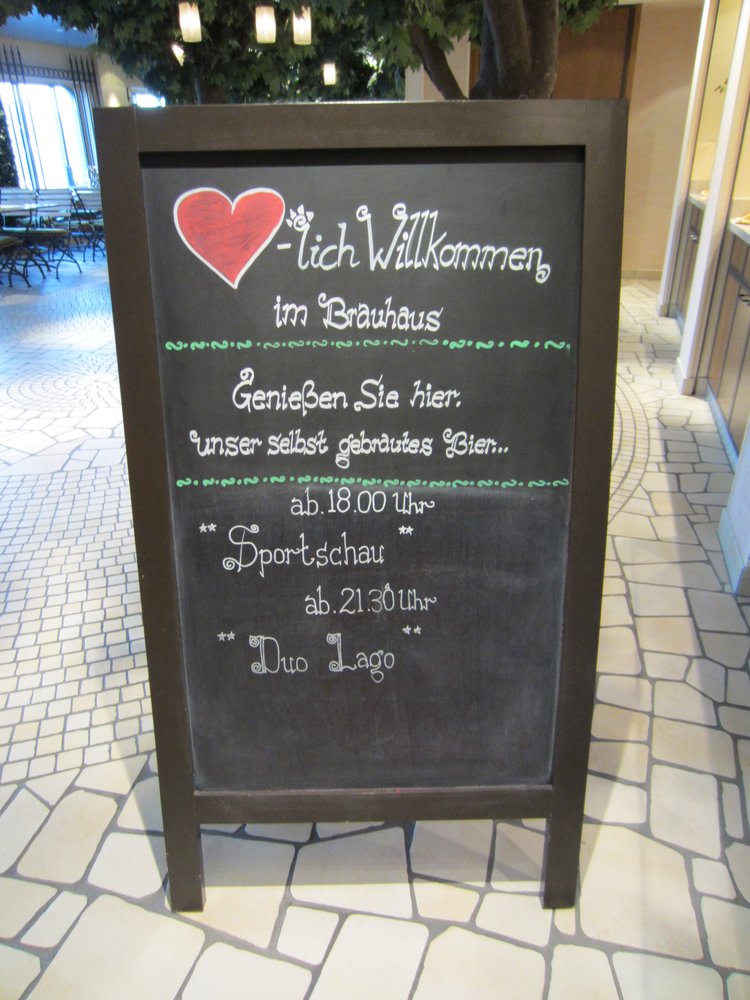 -lich Willkommen
im Brauhaus
Genießen Sie hier.
unser selbst gebrautes Bier...
ab.18.00 Uhr
** Sportschau **
ab.21.30 Uhr
** Duo Lago **